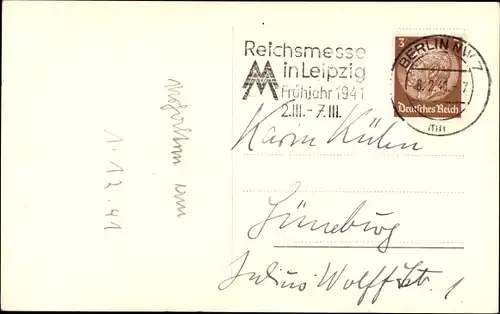 Reichsmesse
in Leipzig
Frühjahr 1941
2.III.-7.III.
3
Deutsches Reich
BERLIN NW 7
Karin Küln
Lüneburg
Julius Wolff Str. 1
erhalten am
1.12.41